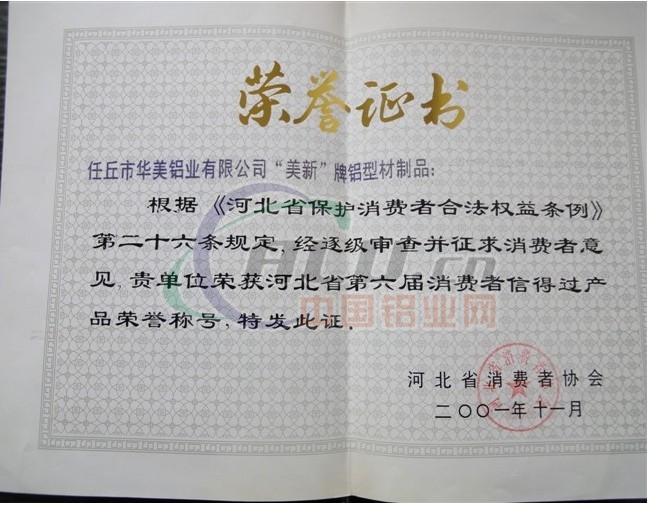 荣誉证书
任丘市华美铝业有限公司“美新”牌铝型材制品:
根据《河北省保护消费者合法权益条例》
第二十六条规定,经逐级审查并征求消费者意
见,贵单位荣获河北省第六届消费者信得过产
品荣誉称号,特发此证.
中国铝业网
河北省消费者协会
二〇〇一年十一月